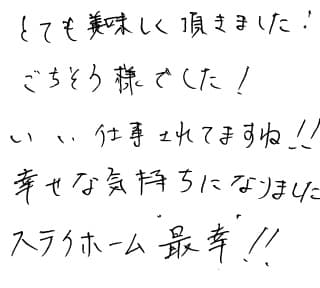 とても美味しく頂きました!
ごちそう様でした!
いい仕事されてますね!!
幸せな気持ちになりました
スライホーム"最幸"!!